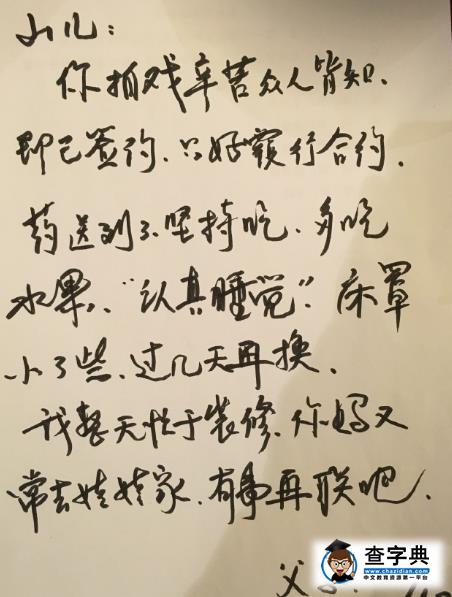 山儿：
你拍戏辛苦众人皆知、
即已签约、只好履行合约、
药送到了坚持吃、多吃
水果、“认真睡觉”．床罩
小了些、过几天再换、
我整天忙于装修、你妈又
常去娃娃家、有事再联吧、
父
查字典
www.chazidian.com
中文教育资源第一平台